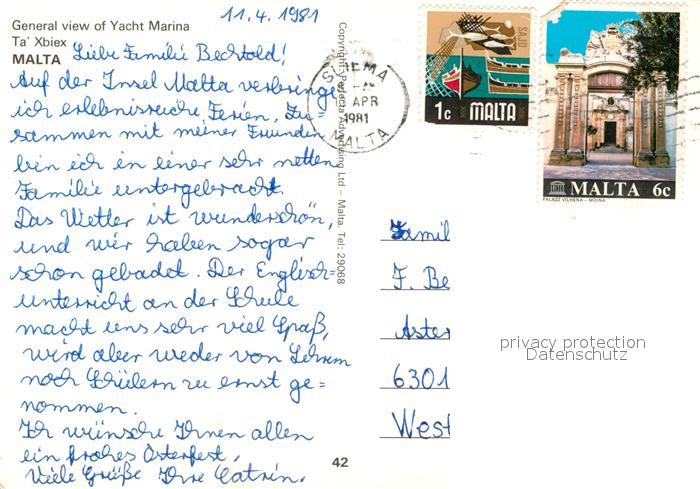 11.4.1981
General view of Yacht Marina
Ta' Xbiex
MALTA
Liebe Familie Bechtold!
Auf der Insel Malta verbringe
ich erlebnisreiche Ferien. Zu=
sammen mit meiner Freundin
bin ich in einer sehr netten
Familie untergebracht.
Das Wetter ist wunderschön,
und wir haben sogar
schon gebadet. Der Englisch=
unterricht an der Schule
macht uns sehr viel Spaß,
wird aber weder von Lehrern
noch Schülern zu ernst ge=
nommen.
Ich wünsche Ihnen allen
ein frohes Osterfest.
Viele Grüße Ihre Catrin.
Copyright Perfecta Advertising Ltd – Malta. Tel: 29068
42
SLIEMA
APR
1981
MALTA
SAJD
1c MALTA
MALTA 6c
PALAZZ VILHENA – MDINA
Famil
F. Be
Aster
6301
West
privacy protection
Datenschutz